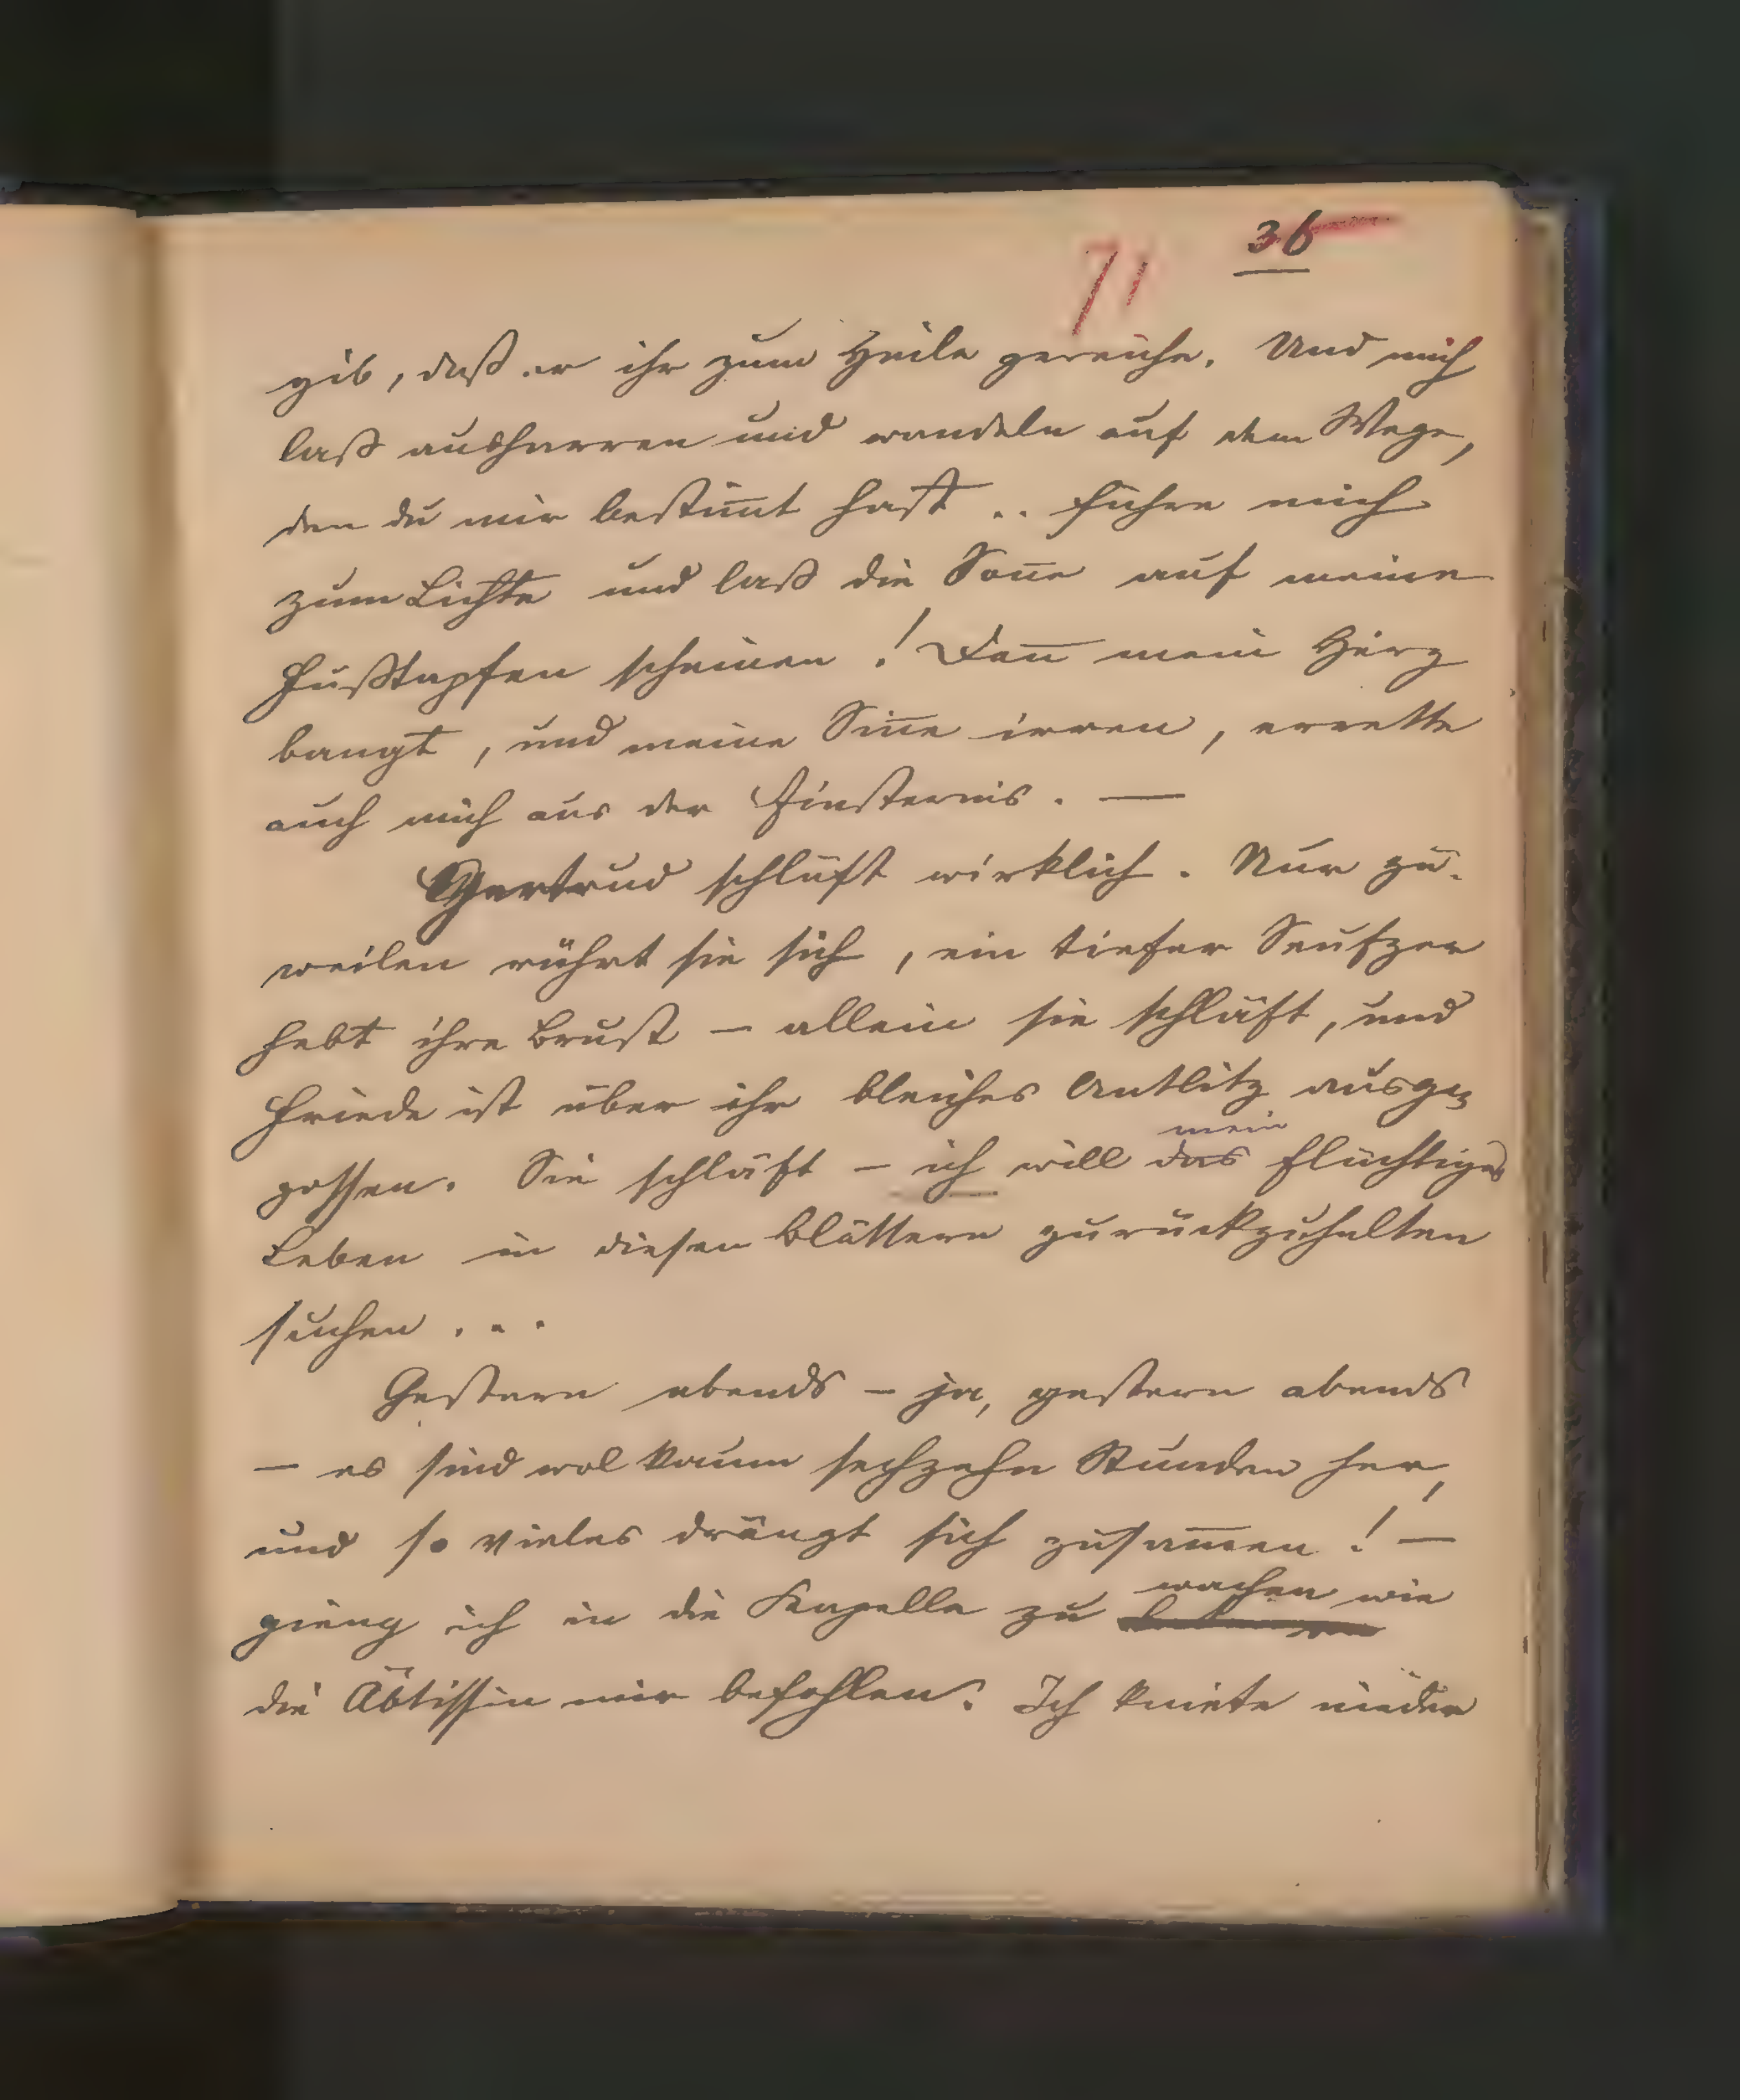 36
71
gib, daß er ihr zum Heile gereiche. Und mich
laß ausharren und wandeln auf dem Wege,
den du mir bestim̅t hast .. führe mich
zum Lichte und laß die Son̅e auf meine
Fußtapfen scheinen! Den̅ mein Herz
bangt, und meine Sin̅e irren, errette
auch mich aus der Finsternis. —
Gertrud schläft wirklich. Nur zu-
weilen rührt sie sich, ein tiefer Seufzer
hebt ihre Brust – allein sie schläft, und
Friede ist über ihr bleiches Antlitz ausge-
mein
gossen. Sie schläft – ich will das flüchtiges
Leben in diesen Blättern zurückzuhalten
suchen . . .
Gestern abends – ja, gestern abends
– es sind wol kaum sechzehn Stunden her,
und so vieles drängt sich zusam̅en! –
wachen wie
gieng ich in die Kapelle zu
die Äbtissin mir befohlen. Ich kniete nieder